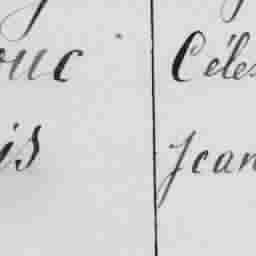 ouc Céles
is Jean